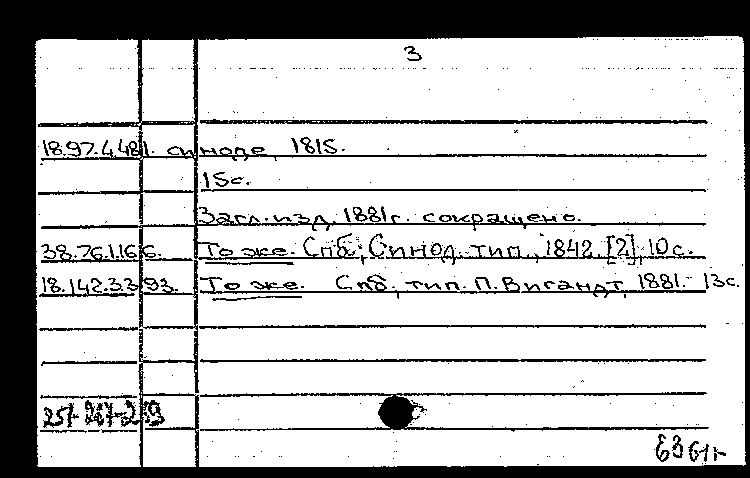 3
18.97.4.481. синоде, 1815.
15с.
Загл. изд. 1881г. сокращено.
38.76.1.166. То же. Спб., Синод. тип., 1842. [2], 10с.
18.142.3.393. То же. Спб., тип. П. Вигандт, 1881. 13с.